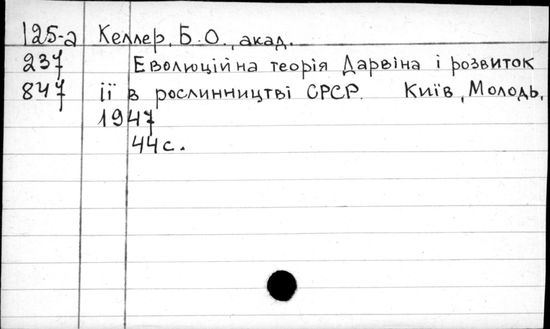 125-а Келлер, Б.О., акад.
237 Еволюційна теорія Дарвіна і розвиток
847 її в рослинництві СРСР. Київ, Молодь,
1947
44 с.